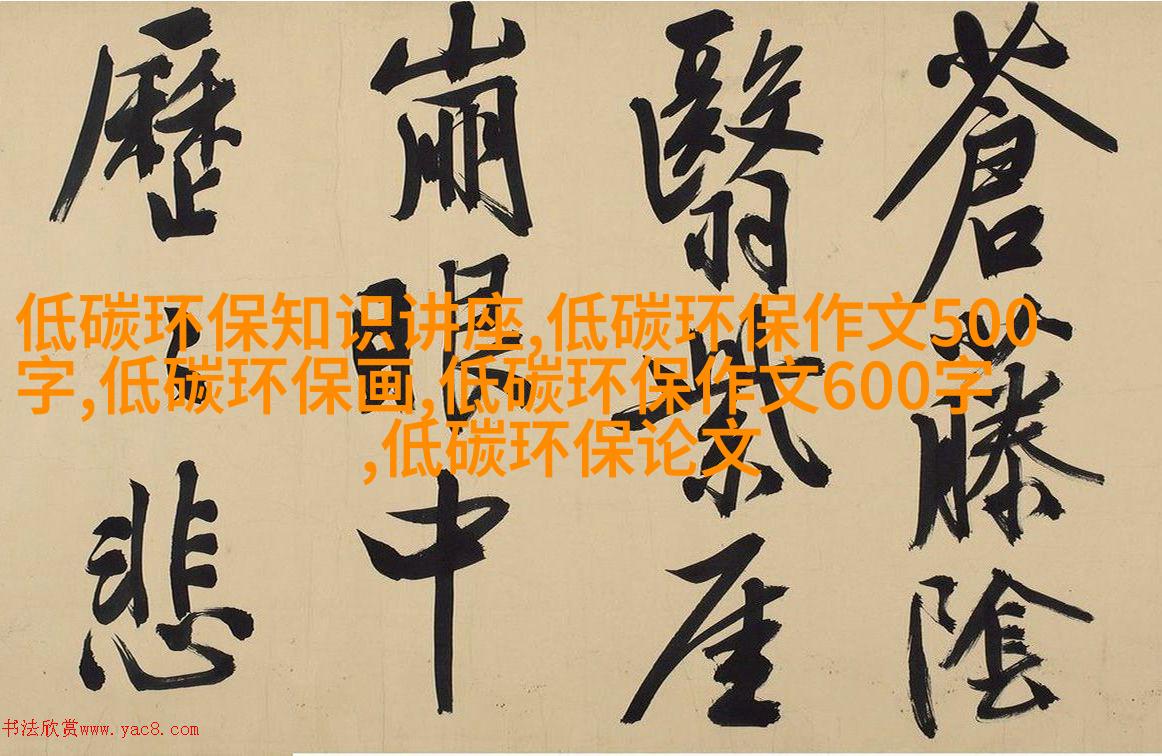 蒼藤陰
翳紫厓
崩眼中
歷悲
低碳环保知识讲座,低碳环保作文500
字,低碳环保画,低碳环保作文600字
,低碳环保论文
书法欣赏www.yac8.com